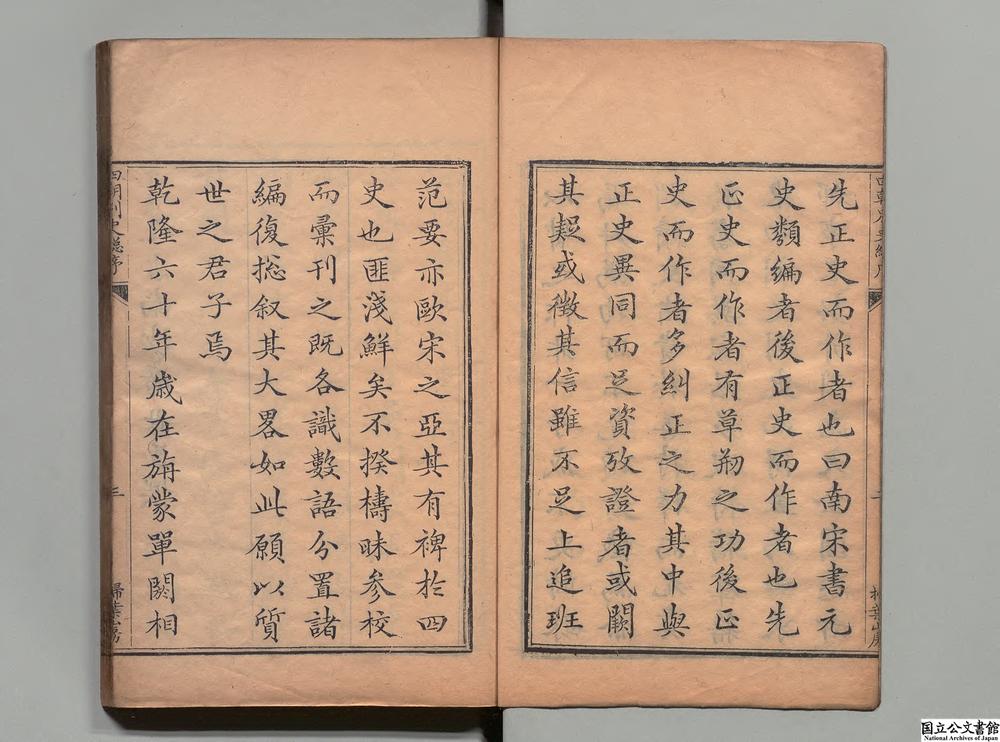 先正史而作者也曰南宋書元
史類編者後正史而作者也先
正史而作者有草剏之功後正
史而作者多糾正之力其中與
正史異同而足資攷證者或闕
其疑或徵其信雖不足上追班
范要亦歐宋之亞其有裨於四
史也匪淺鮮矣不揆檮昧參校
而彙刊之既各識數語分置諸
編復捴叙其大畧如此願以質
世之君子焉
乾隆六十年歲在旃蒙單閼相
四朝別史總序
三
掃葉山房
国立公文書館
National Archives of Japan